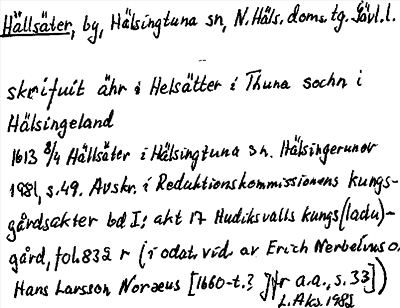 Hällsäter, by, Hälsingtuna sn, N. Häls. doms. tg. Gävl. l.
skrifuit ähr i Helsätter i Thuna sochn i
Hälsingeland
1613 8/4 Hällsäter i Hälsingtuna sn. Hälsingerunor
1981, s. 49. Avskr. i Reduktionskommissionens kungs-
gårdsakter bd I: akt 17 Hudiksvalls kungs(ladu)-
gård, fol. 832 r (i odat. vid. av Erich Nerbelius o.
Hans Larsson Noræus [1660-t.? ] fr a.a., s. 33])
L. Aks. 1985